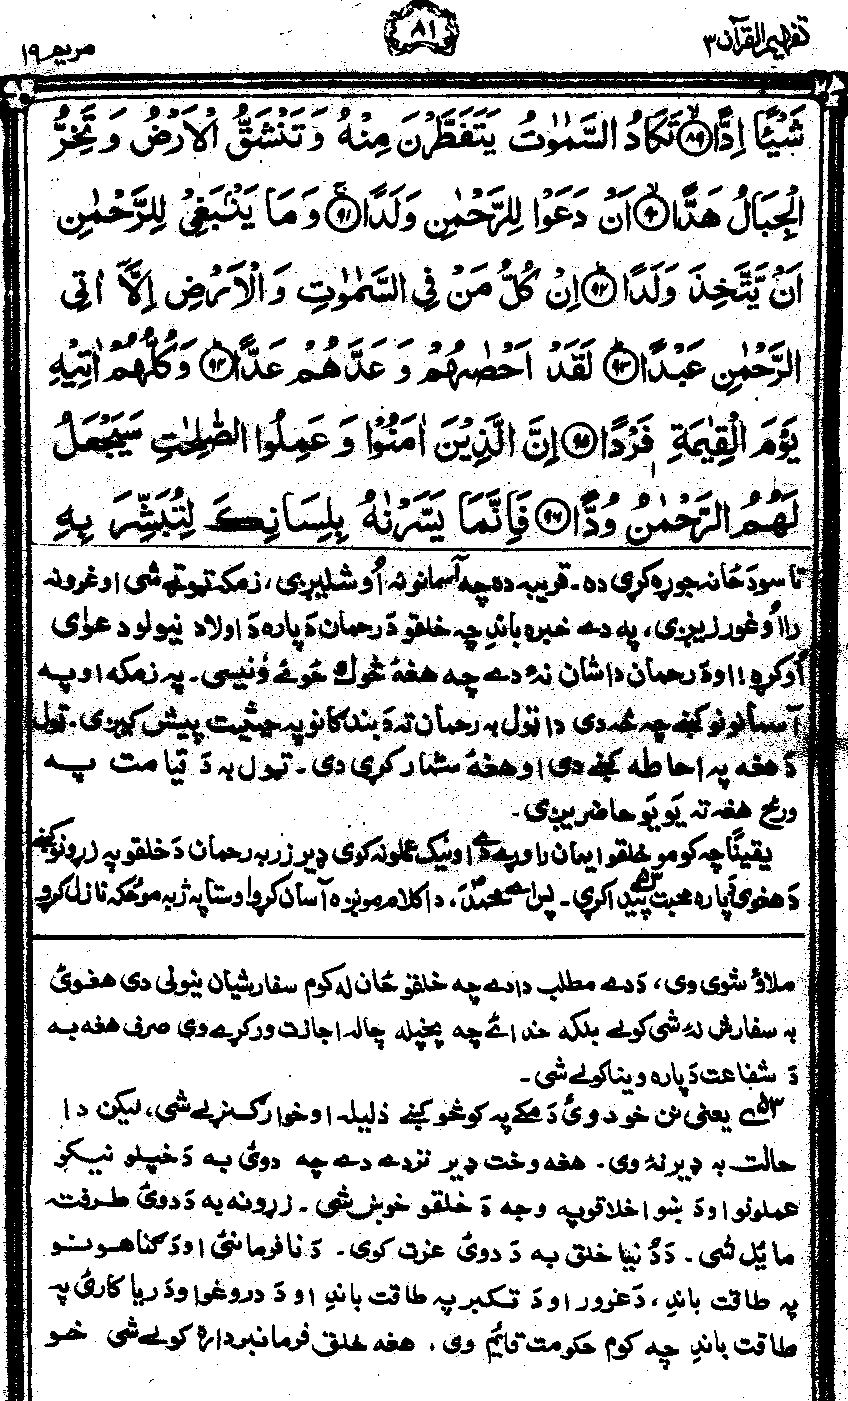 تفهيم القرآن ۳
۸۱
مريم ۱۹
شَيْـًٔا اِدًّا ﴿۸۹﴾ تَكَادُ السَّمٰوٰتُ يَتَفَطَّرْنَ مِنْهُ وَ تَنْشَقُّ الْاَرْضُ وَ تَخِرُّ
الْجِبَالُ هَدًّا ﴿۹۰﴾ اَنْ دَعَوْا لِلرَّحْمٰنِ وَلَدًا ﴿۹۱﴾ وَ مَا يَنْۢبَغِيْ لِلرَّحْمٰنِ
اَنْ يَّتَّخِذَ وَلَدًا ﴿۹۲﴾ اِنْ كُلُّ مَنْ فِي السَّمٰوٰتِ وَ الْاَرْضِ اِلَّاۤ اٰتِي
الرَّحْمٰنِ عَبْدًا ﴿۹۳﴾ لَقَدْ اَحْصٰىهُمْ وَ عَدَّهُمْ عَدًّا ﴿۹۴﴾ وَ كُلُّهُمْ اٰتِيْهِ
يَوْمَ الْقِيٰمَةِ فَرْدًا ﴿۹۵﴾ اِنَّ الَّذِيْنَ اٰمَنُوْا وَ عَمِلُوا الصّٰلِحٰتِ سَيَجْعَلُ
لَهُمُ الرَّحْمٰنُ وُدًّا ﴿۹۶﴾ فَاِنَّمَا يَسَّرْنٰهُ بِلِسَانِكَ لِتُبَشِّرَ بِهِ
تاسو دَ ځانه جوړه کړی ده۔ قريبه ده چه آسمانونه اُوشليږی، زمکه ټوټے شی او غرونه
رااُوغورزيږی، په دے خبره باندِ چه خلقو دَ رحمان دَ پاره دَ اولاد نيولو دعوٰی
اُوکړه! او دَ رحمان دا شان نهٔ دے چه هغهٔ څوک څوئے وُنيسی۔ په زمکه او په
آسمانونو کښے چه څهٔ دی دا ټول به رحمان ته دَ بندګانو په حيثيت پيش کيږی۔ ټول
دَ هغه په احاطه کښے دی او هغهٔ شمار کړی دی۔ ټول به دَ قيامت په
ورځ هغه ته يَو يَو حاضريږی۔
يقينًا چه کومو خلقو ايمان راوړے دے او نيک عملونه کوی ډير زر به رحمان دَ خلقو په زړونو کښے
دَ هغوی دَ پاره محبت پيدا کړی۔ پس اے محمدؐ، دا کلام مونږه آسان کړو او ستا په ژبه مو ځکه نازل کړو
ملاؤ شوی وی، دَ دے مطلب دا دے چه خلقو ځان له کوم سفارشيان نيولی دی هغوئ
به سفارش نهٔ شی کولے بلکه خدائے چه پخپله چاله اجازت ورکړے وی صرف هغه به
دَ شفاعت دَ پاره وينا کولے شی۔
۵۳ے يعنی نن خو دوئ دَ مکے په کوڅو کښے ذليله او خوار ګنړلے شی، ليکن دا
حالت به ډير نهٔ وی۔ هغه وخت ډير نزدے دے چه دوئ به دَ خپلو نيکو
عملونو او دَ ښو اخلاقو په وجه دَ خلقو خوښ شی۔ زړونه به دَ دوئ طرفته
مائل شی۔ دَ دُنيا خلق به دَ دوئ عزت کوی۔ دَ نافرمانئ او دَ ګناهونو
په طاقت باندِ، دَ غرور او دَ تکبر په طاقت باندِ او دَ دروغو او دَ رياکارئ په
طاقت باندِ چه کوم حکومت قائم وی، هغه خلق فرمانبرداره کولے شی خو